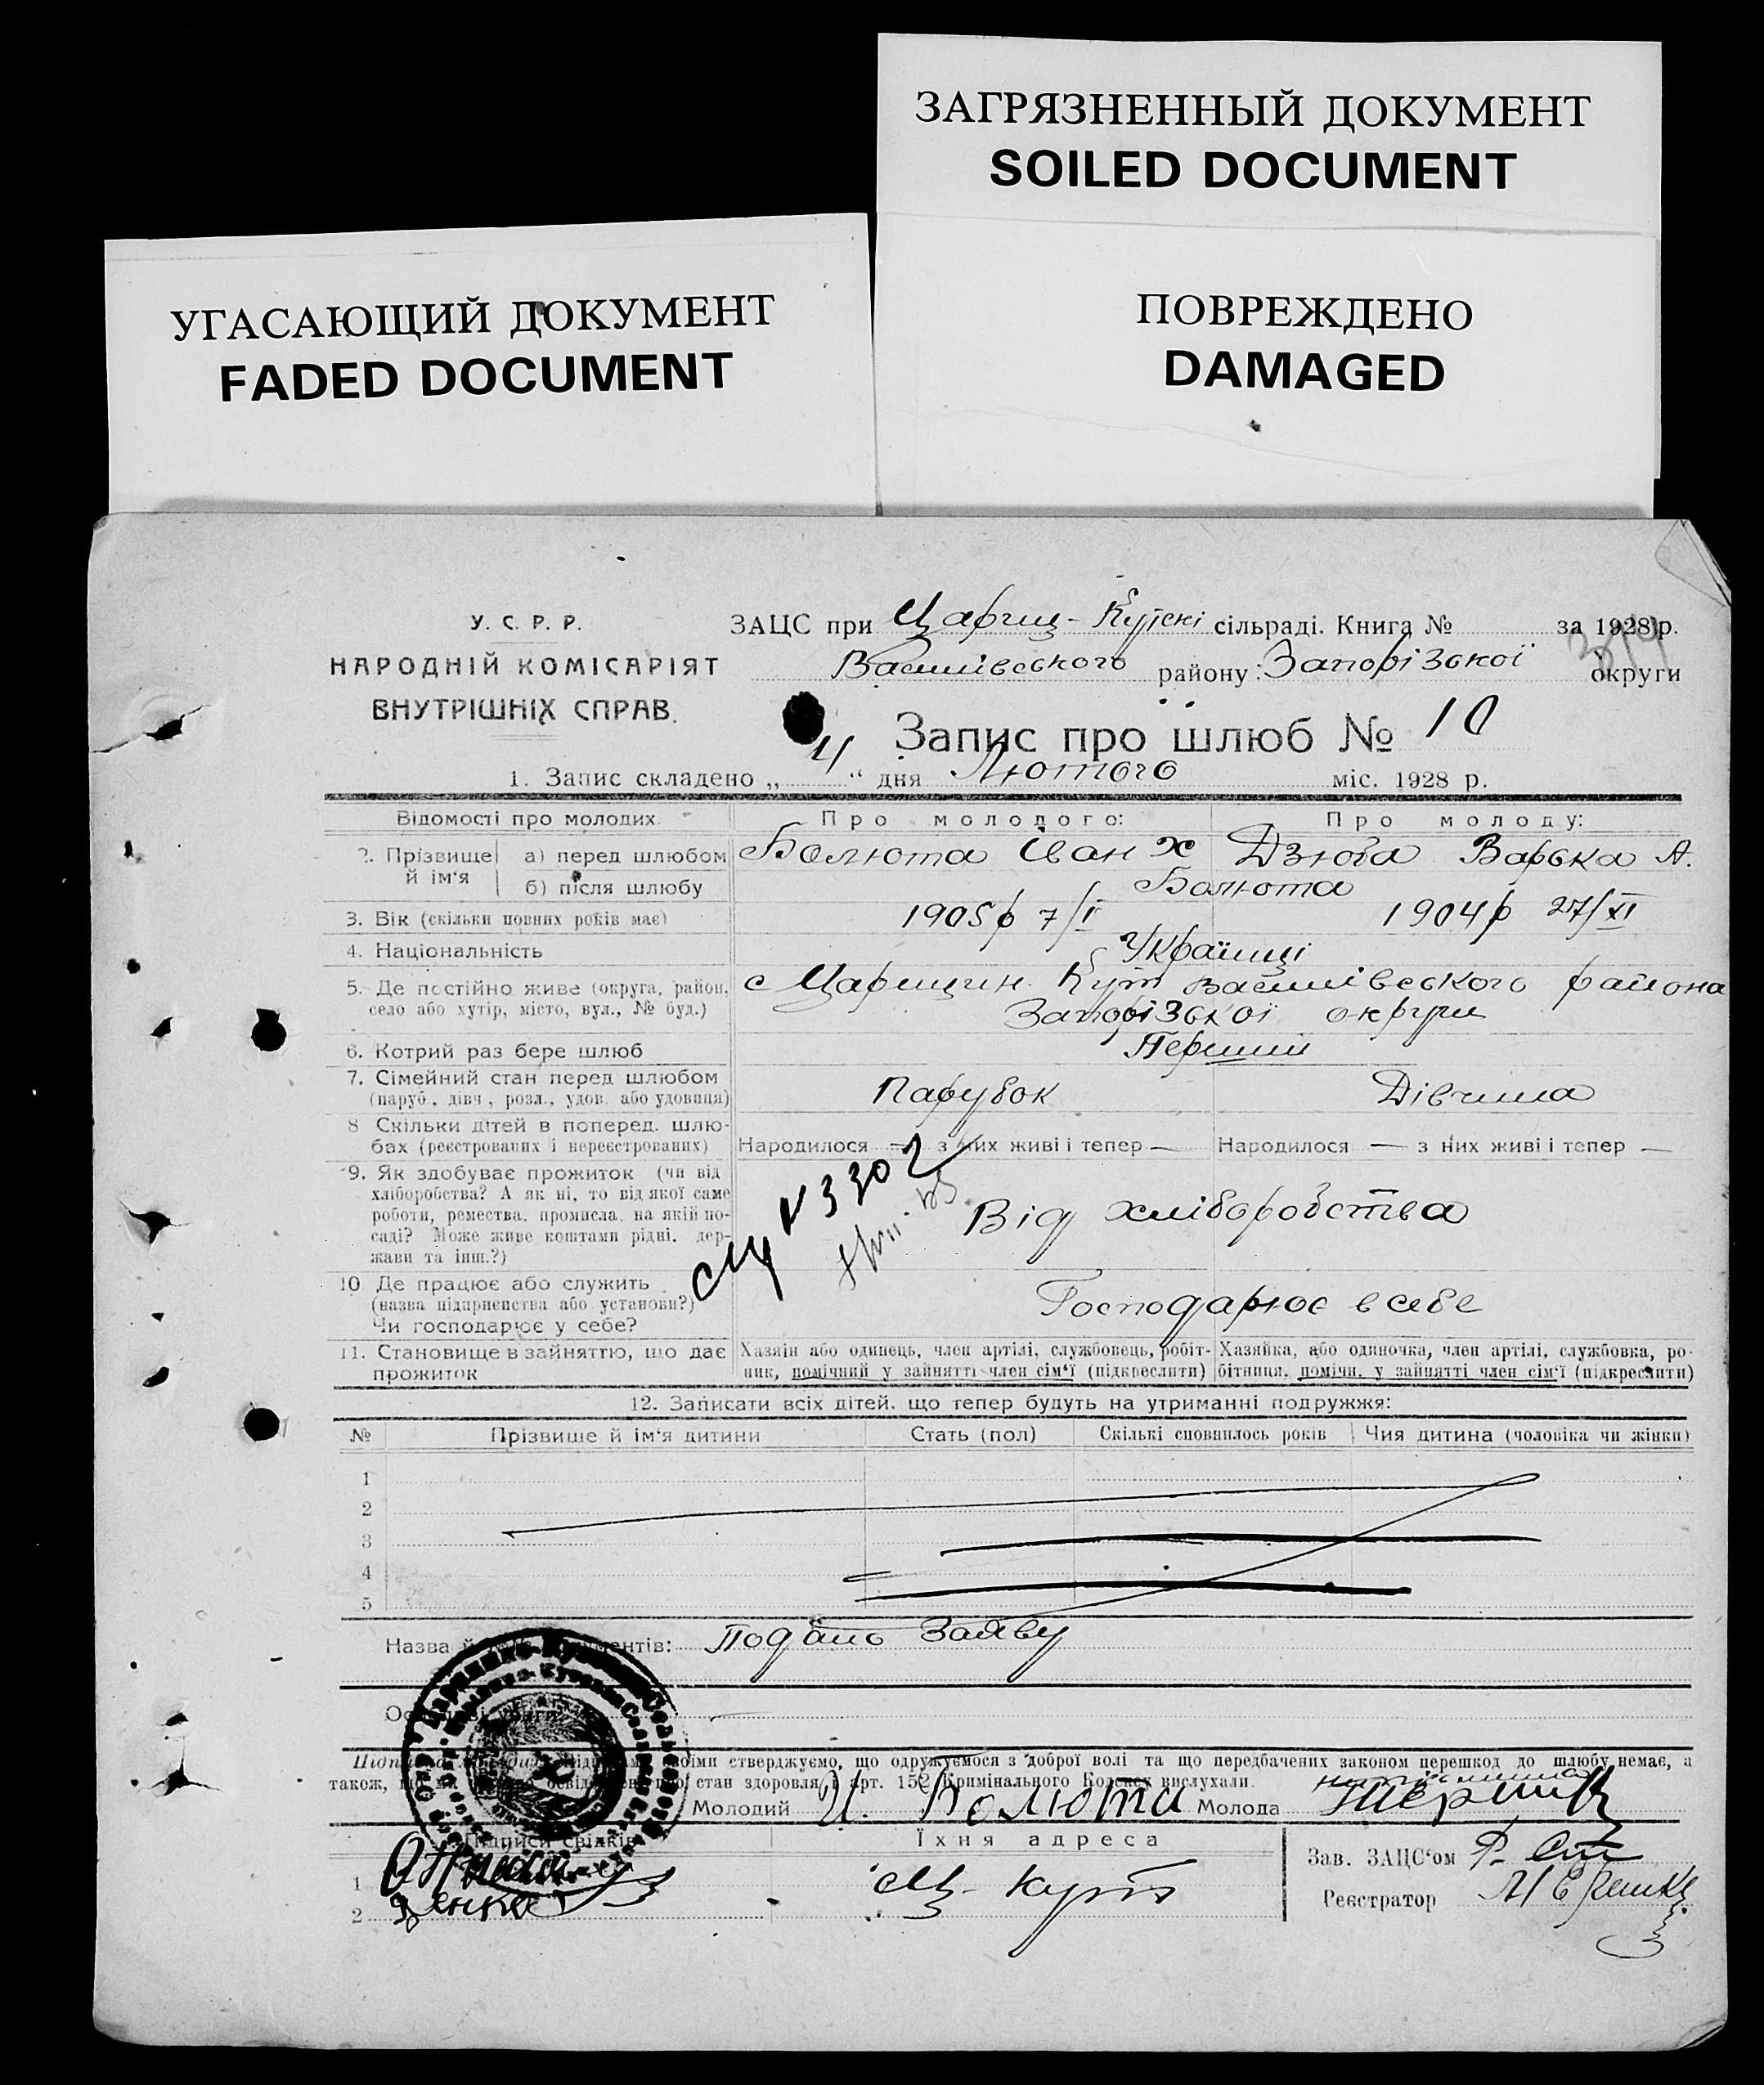 ЗАГРЯЗНЕННЫЙ ДОКУМЕНТ
SOILED DOCUMENT
УГАСАЮЩИЙ ДОКУМЕНТ
FADED DOCUMENT
ПОВРЕЖДЕНО
DAMAGED
У. С. Р. Р.
НАРОДНІЙ КОМІСАРІЯТ
ВНУТРІШНІХ СПРАВ.
ЗАЦС при Цариц-Кутскі сільраді. Книга № за 1928 р.
Василівського району Запорізької округи
Запис про шлюб № 10
1. Запис складено „ 4 “ дня Лютого міс. 1928 р.
Відомості про молодих Про молодого: Про молоду:
2. Прізвище й ім'я а) перед шлюбом Болюта Іван Х Дзюба Варька А.
б) після шлюбу Болюта
3. Вік (скільки повних років має) 1905 р 7/I 1904 р 27/XI
4. Національність Українці
5. Де постійно живе (округа, район, с Царицин Кут Василівського района
село або хутір, місто, вул., № буд.) Запорізької округи
6. Котрий раз бере шлюб Перший
7. Сімейний стан перед шлюбом Парубок Дівчина
(паруб., дівч., розл., удов. або удовиця)
8 Скільки дітей в поперед. шлю-
бах (реєстрованих і нереєстрованих) Народилося — з них живі і тепер — Народилося — з них живі і тепер —
9. Як здобуває прожиток (чи від
хліборобства? А як ні, то від якої саме
роботи, ремества, промисла, на якій по-
саді? Може живе коштами рідні, дер-
жави та інш.?) Від хліборобства
№ 3302
10 Де працює або служить
(назва підприємства або установи?)
Чи господарює у себе? Господарює в себе
11. Становище в зайняттю, що дає
прожиток
Хазяїн або одинець, член артілі, службовець, робіт-
ник, помічний у зайнятті член сім'ї (підкреслити)
Хазяйка, або одиночка, член артілі, службовка, ро-
бітниця, помічн. у зайнятті член сім'ї (підкреслити)
12. Записати всіх дітей, що тепер будуть на утриманні подружжя:
№ Прізвище й ім'я дитини Стать (пол) Скількі сповнилось років Чия дитина (чоловіка чи жінки)
1
2
3
4
5
Назва й документів: Подано Заяву
стверджуємо, що одружуємося з доброї волі та що передбачених законом перешкод до шлюбу немає, а
також, стан здоровля й арт. 152 Кримінального Кодексу вислухали.
Молодий И. Болюта Молода
Підписи свідків Їхня адреса
1 Ц-Кут
2
Зав. ЗАЦС'ом
Реєстратор